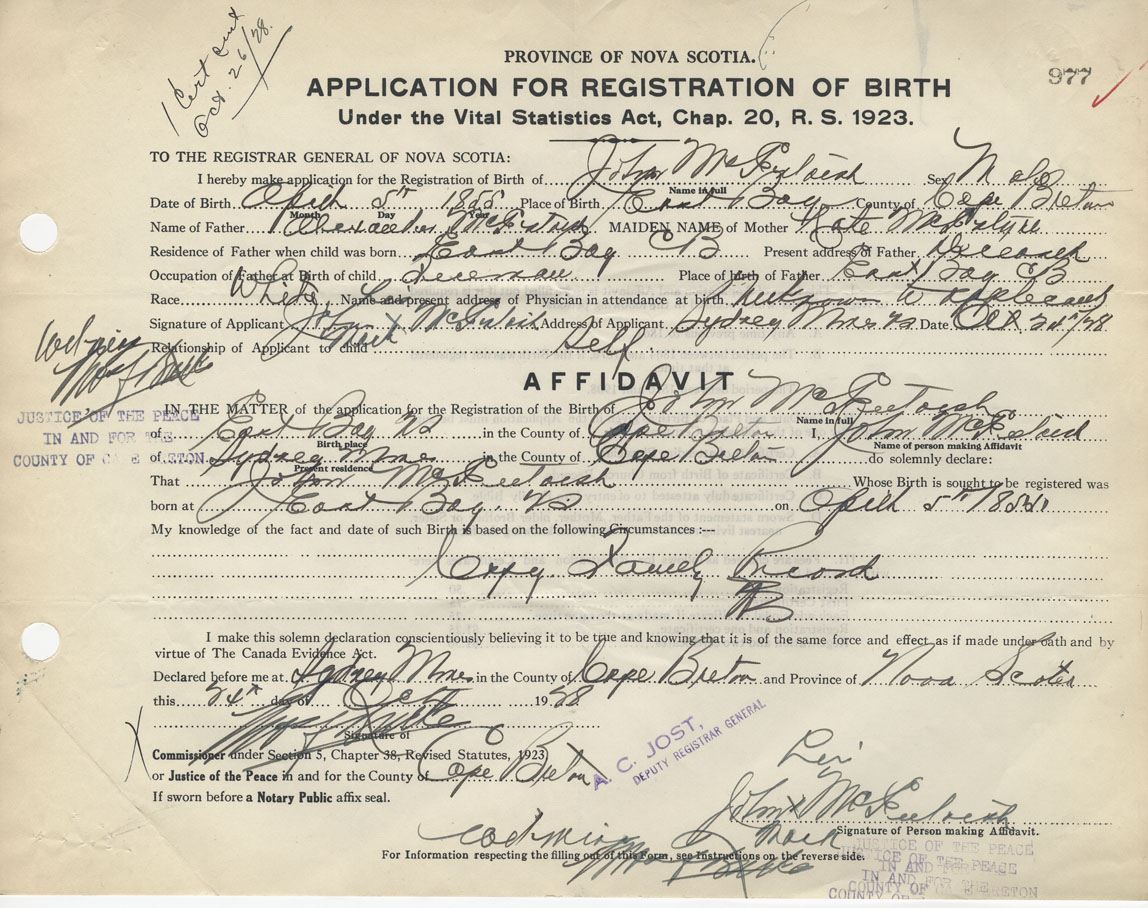 1 Cert sent
Oct. 26/28.
PROVINCE OF NOVA SCOTIA.
977
APPLICATION FOR REGISTRATION OF BIRTH
Under the Vital Statistics Act, Chap. 20, R. S. 1923.
TO THE REGISTRAR GENERAL OF NOVA SCOTIA:
I hereby make application for the Registration of Birth of John McIntosh Sex Male
Name in full
Date of Birth April 5th 1855 Place of Birth East Bay County of Cape Breton
Month Day Year
Name of Father Alexander McIntosh MAIDEN NAME of Mother Kate McIntyre
Residence of Father when child was born East Bay CB Present address of Father Deceased
Occupation of Father at Birth of child Place of birth of Father East Bay CB
Race White Name and present address of Physician in attendance at birth unknown to applicant
Signature of Applicant John X McIntosh Address of Applicant Sydney Mines Date Oct 24th/28
mark
Relationship of Applicant to child Self
AFFIDAVIT
JUSTICE OF THE PEACE
IN AND FOR THE
COUNTY OF CAPE BRETON
IN THE MATTER of the application for the Registration of the Birth of John McIntosh
Name in full
of East Bay NS in the County of Cape Breton I, John McIntosh
Birth place Name of person making Affidavit
of Sydney Mines in the County of Cape Breton do solemnly declare:
Present residence
That John McIntosh Whose Birth is sought to be registered was
born at East Bay NS on April 5th 185
My knowledge of the fact and date of such Birth is based on the following Circumstances :--
Copy Family Record
I make this solemn declaration conscientiously believing it to be true and knowing that it is of the same force and effect as if made under oath and by
virtue of The Canada Evidence Act.
Declared before me at Sydney Mines in the County of Cape Breton and Province of Nova Scotia
this 24th day of Oct 1928
Signature of
Commissioner under Section 5, Chapter 38, Revised Statutes, 1923
or Justice of the Peace in and for the County of Cape Breton
If sworn before a Notary Public affix seal.
A. C. JOST,
DEPUTY REGISTRAR GENERAL
his
John X McIntosh
mark
Signature of Person making Affidavit.
For Information respecting the filling out of this Form, see Instructions on the reverse side.
JUSTICE OF THE PEACE
IN AND FOR THE
COUNTY OF CAPE BRETON